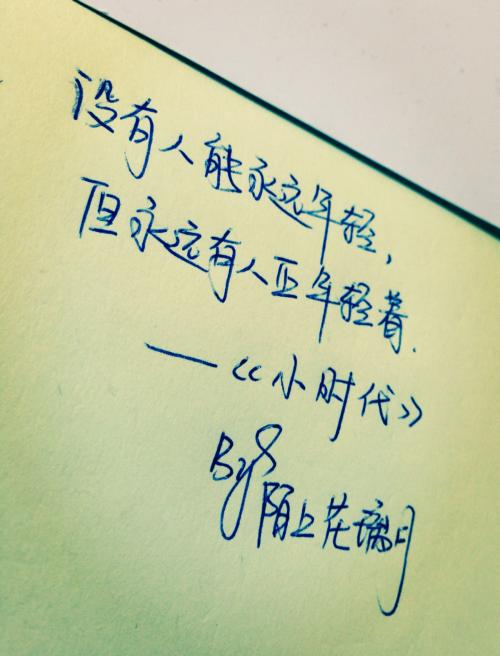 没有人能永远年轻,
但永远有人正年轻着.
—《小时代》
By 陌上花璃月